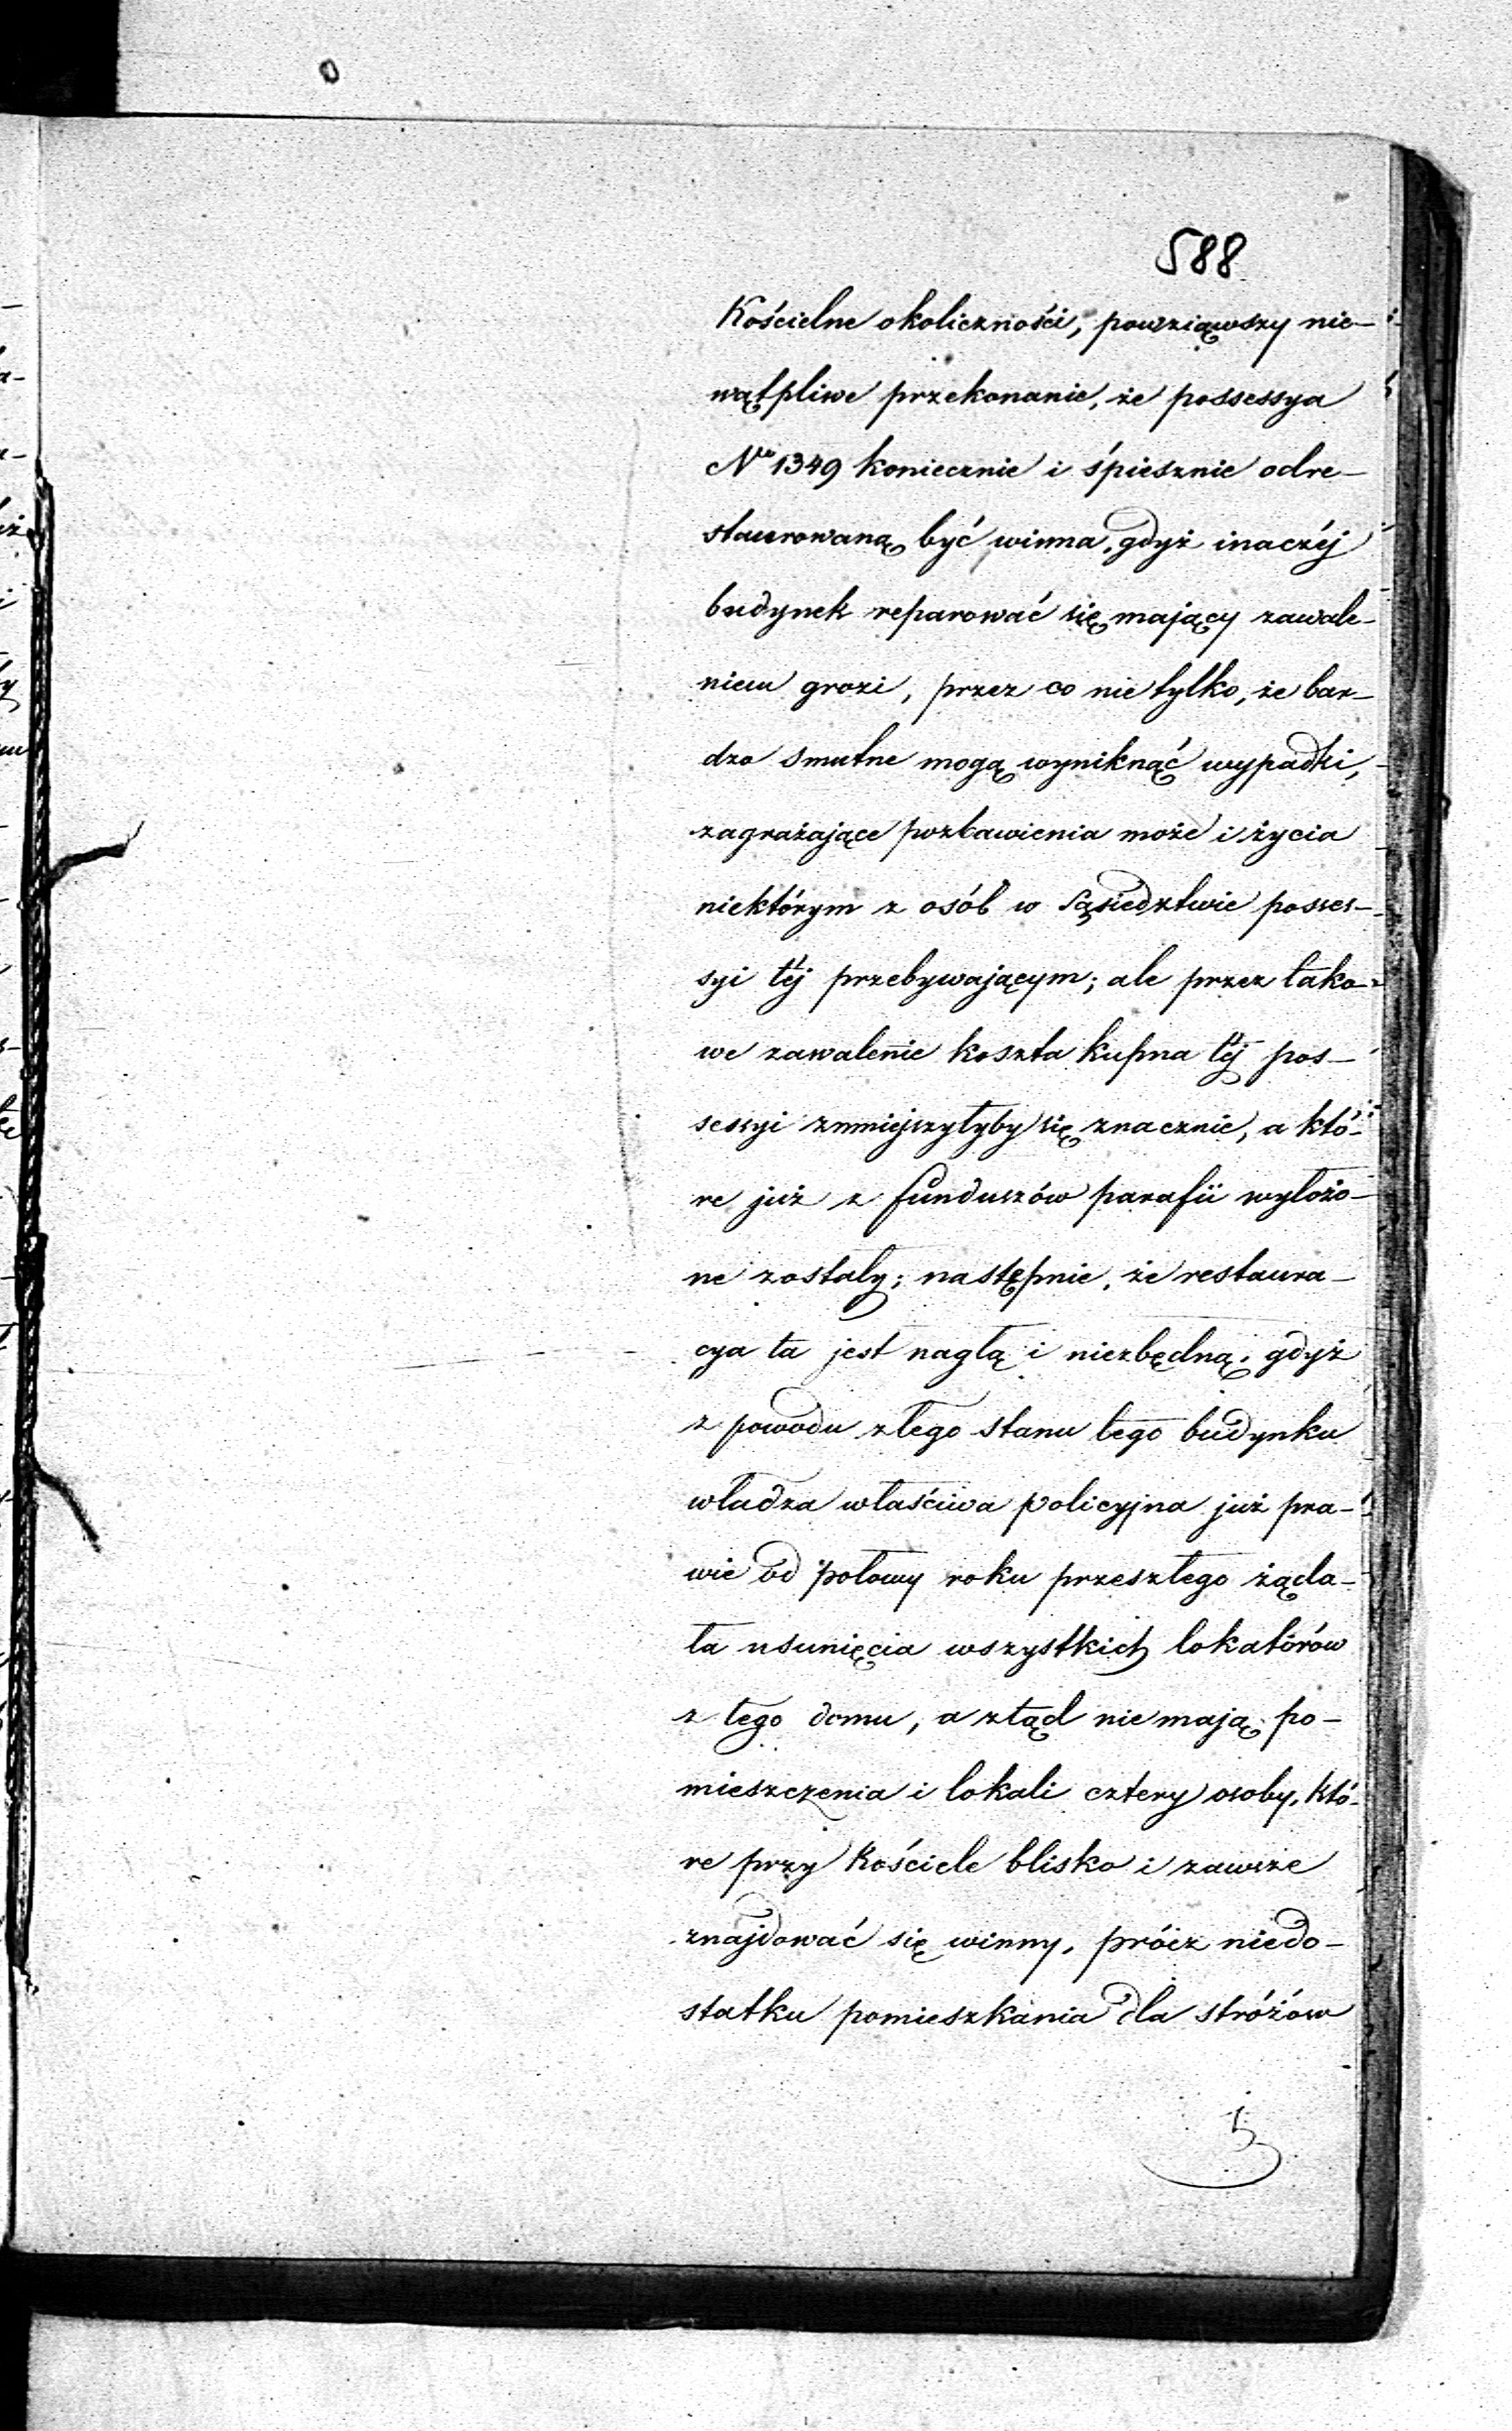 588
Kościelne okoliczności, powziąwszy nie-
wątpliwe przekonanie, że possessya
No 1349 koniecznie i śpiesznie odre-
staurowaną być winna, gdyż inaczéj
budynek reparować się mający zawale-
niem grozi, przez co nie tylko, że bar-
dzo smutne mogą wyniknąć wypadki,
zagrażające pozbawienia może i życia
niektórym z osób w sąsiedztwie posses-
syi téj przebywającym; ale przez tako-
we zawalenie koszta kupna téj pos-
sessyi zmniejszyłyby się znacznie, a któ-
re już z funduszów parafii wyłożo-
ne zostały; następnie, że restaura-
cya ta jest nagłą i niezbędną, gdyż
z powodu złego stanu tego budynku
władza właściwa policyjna już pra-
wie od połowy roku przeszłego żąda-
ła usunięcia wszystkich lokatorów
z tego domu, a ztąd nie mają po-
mieszczenia i lokali cztery osoby, któ-
re przy kościele blisko i zawsze
znajdować się winny, prócz niedo-
statku pomieszkania dla stróżów